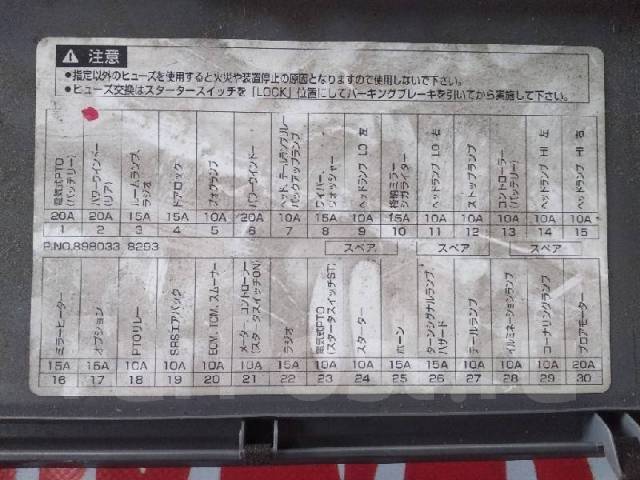 注意
●指定以外のヒューズを使用すると火災や装置停止の原因となりますので使用しないで下さい。
●ヒューズ交換はスタータースイッチを「LOCK」位置にしてパーキングブレーキを引いてから実施して下さい。
電気式PTO
(バッテリー)
パワーウインドー
(リア)
ルームランプ
ラジオ
ドアロック
フォグランプ
パワーウインドー
ヘッド、テールランプリレー
バックアップランプ
ワイパー、
ウォッシャー
ヘッドランプ LO 左
シガライター
ヘッドランプ LO 右
ストップランプ
コントローラー
(バッテリー)
ヘッドランプ HI 左
ヘッドランプ HI 右
20A 20A 15A 15A 10A 20A 10A 15A 10A 15A 10A 10A 10A 10A 10A
1 2 3 4 5 6 7 8 9 10 11 12 13 14 15
P.NO.898033 8293 スペア スペア スペア
ミラーヒーター
オプション
PTOリレー
SRSエアバック
ECM, TCM, スムーサー
メータ、コントローラー
(スタータスイッチON)
ラジオ
電気式PTO
(スタータスイッチST)
スターター
ホーン
ターンシグナルランプ
ハザード
テールランプ
イルミネーションランプ
コーナリングランプ
ブロアモーター
15A 15A 10A 10A 10A 10A 15A 10A 10A 15A 15A 10A 10A 10A 20A
16 17 18 19 20 21 22 23 24 25 26 27 28 29 30